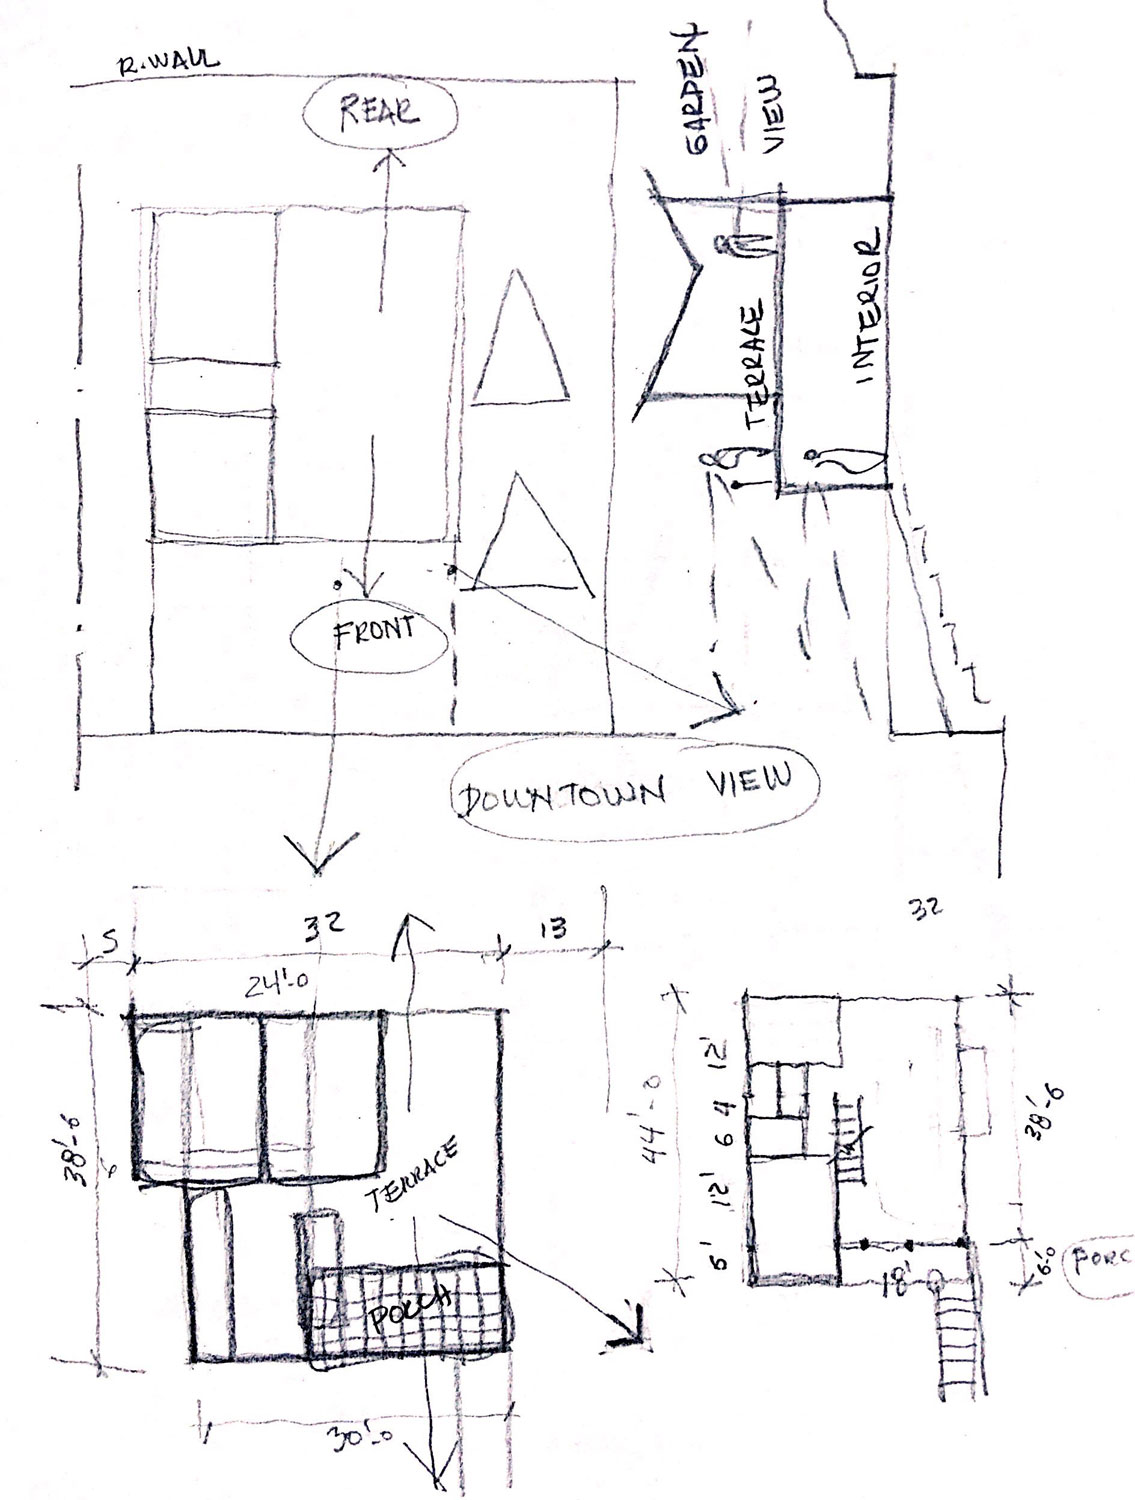 R.WALL
REAR
GARDEN
VIEW
TERRACE
INTERIOR
FRONT
DOWNTOWN VIEW
5
32
13
24'-0
38'-6
TERRACE
PORCH
30'-0
32
44'-0
12'
4
6
12'
38'-6
18'
6'-0
PORC